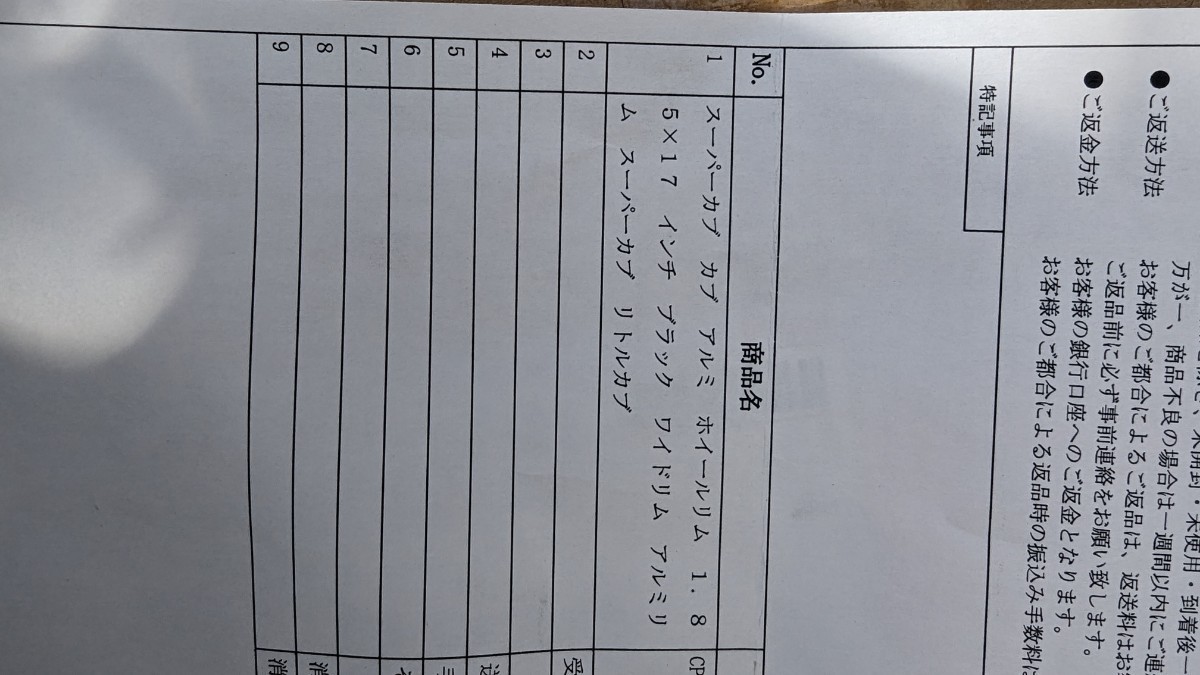 ● ご返送方法
● ご返金方法
未開封・未使用・到着後一
万が一、商品不良の場合は一週間以内にご連
お客様のご都合によるご返品は、返送料はお
ご返品前に必ず事前連絡をお願い致します。
お客様の銀行口座へのご返金となります。
お客様のご都合による返品時の振込み手数料
特記事項
No. 商品名
1 スーパーカブ カブ アルミ ホイールリム 1.8
5×17 インチ ブラック ワイドリム アルミリ
ム スーパーカブ リトルカブ
CP
2 受
3
4 送
5
6
7
8 消
9 消